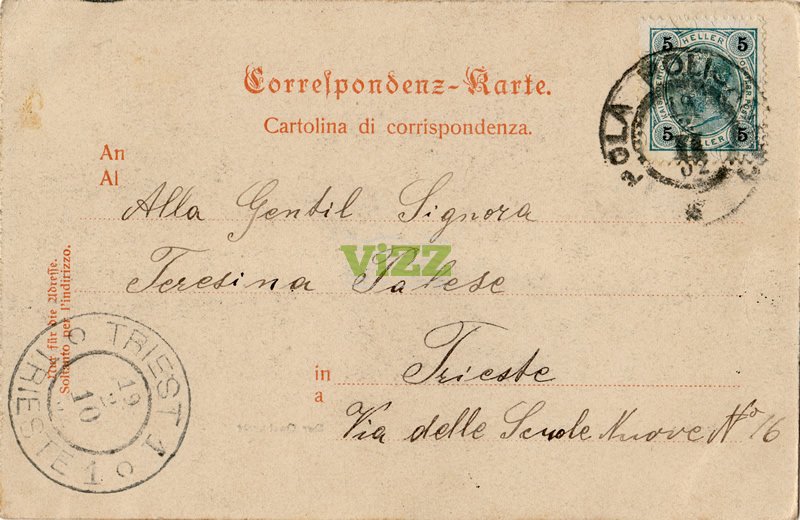 5 HELLER 5
5 HELLER 5
POLA
Correspondenz-Karte.
Cartolina di corrispondenza.
An
Al
Alla Gentil Signora
ViZZ
Teresina Palese
Nur für die Adresse.
Soltanto per l'indirizzo.
in Trieste
a
Via delle Scuole Nuove No 16
TRIEST 1
19
10
TRIESTE 1